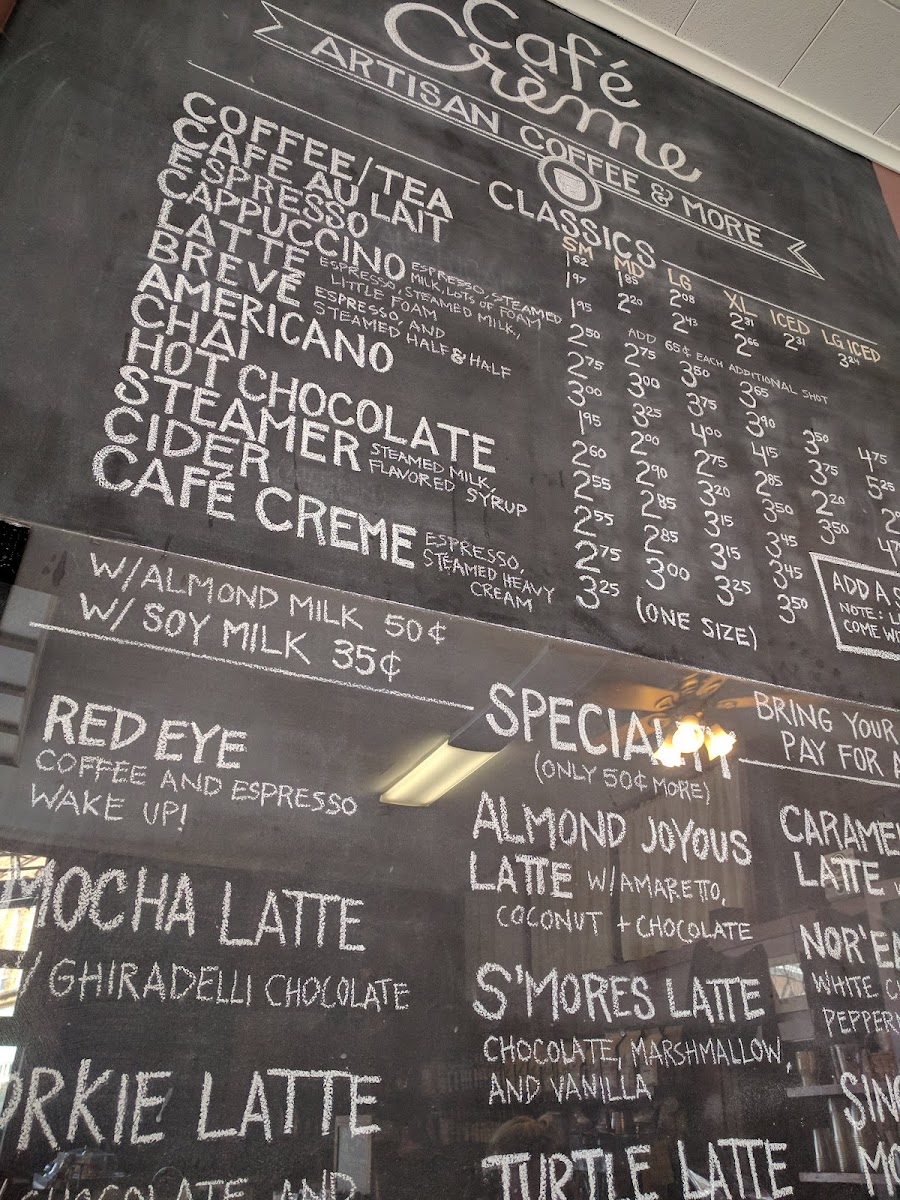 Café Crème
ARTISAN COFFEE & MORE
CLASSICS
SM MD LG XL ICED LG ICED
COFFEE/TEA 1 62 1 85 2 08 2 31 2 31 3 24
CAFE AU LAIT 1 97 2 20 2 43 2 66
ESPRESSO 1 95 ADD 65¢ EACH ADDITIONAL SHOT
CAPPUCCINO ESPRESSO, STEAMED MILK, LOTS OF FOAM 2 50 2 75 3 50 3 65
LATTE ESPRESSO, STEAMED MILK, LITTLE FOAM 2 75 3 00 3 75 3 90 3 50 4 75
BREVÉ ESPRESSO AND STEAMED HALF & HALF 3 00 3 25 4 00 4 15 3 75 5 25
AMERICANO 1 95 2 00 2 75 2 85 2 20
CHAI 2 60 2 90 3 20 3 50 3 50
HOT CHOCOLATE 2 55 2 85 3 15 3 45
STEAMER STEAMED MILK, FLAVORED SYRUP 2 55 2 85 3 15 3 45
CIDER 2 75 3 00 3 25 3 50
CAFÉ CREME ESPRESSO, STEAMED HEAVY CREAM 3 25 (ONE SIZE)
ADD A
NOTE:
COME
W/ALMOND MILK 50¢
W/ SOY MILK 35¢
SPECIALTY
(ONLY 50¢ MORE)
BRING YOUR
PAY FOR A
RED EYE
COFFEE AND ESPRESSO
WAKE UP!
MOCHA LATTE
W/ GHIRADELLI CHOCOLATE
ORKIE LATTE
CHOCOLATE AND
ALMOND JOYOUS
LATTE W/AMARETTO,
COCONUT + CHOCOLATE
S'MORES LATTE
CHOCOLATE, MARSHMALLOW,
AND VANILLA
TURTLE LATTE
CARAMEL
LATTE
NOR'EA
WHITE C
PEPPERM
SING
MO